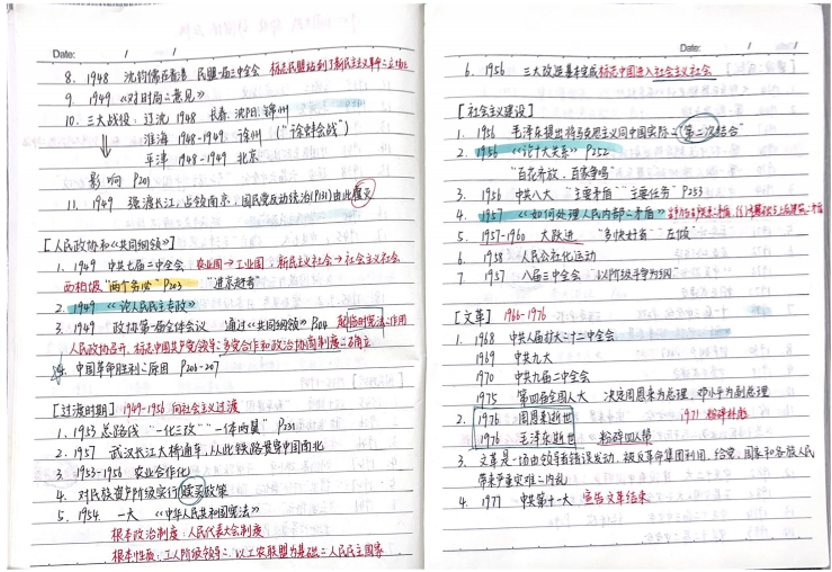 Date: / /
8. 1948 沈钧儒在香港 民盟一届三中全会 标志民盟站到了新民主义革命立场上
9. 1949 《对时局意见》
10. 三大战役：辽沈 1948 长春.沈阳.锦州
淮海 1948-1949. 徐州 ("徐蚌会战")
平津 1948-1949 北京
影响 P201
11. 1949 强渡长江，占领南京，国民党反动统治(P131)由此覆灭
[人民政协和《共同纲领》]
1. 1949 中共七届二中全会 农业国→工业国，新民主义社会→社会主义社会
西柏坡 "两个务必" P203 "进京赶考"
2. 1949 《论人民民主专政》
3. 1949 政协第一届全体会议 通过《共同纲领》P204 起临时宪法作用
人民政协召开，标志中国共产党领导多党合作和政治协商制度确立
4. 中国革命胜利原因 P206-207
[过渡时期] 1949-1956 向社会主义过渡
1. 1953 总路线 "一化三改" "一体两翼" P231
2. 1957 武汉长江大桥通车，从此铁路贯穿中国南北
3. 1953-1956 农业合作化
4. 对民族资产阶级实行赎买政策
5. 1954. 一大 《中华人民共和国宪法》
根本政治制度：人民代表大会制度
根本性质：工人阶级领导、以工农联盟为基础人民民主国家
Date: / /
6. 1956 三大改造基本完成标志中国进入社会主义社会
[社会主义建设]
1. 1956 毛泽东提出将马克思主义同中国实际"第二次结合"
2. 1956 《论十大关系》P252
"百花齐放，百家争鸣"
3. 1956 中共八大 "主要矛盾" "主要任务" P253
4. 1957 《如何处理人民内部矛盾》
5. 1957-1960 大跃进 "多快好省" "左倾"
6. 1958 人民公社化运动
7. 1957 八届三中全会 "以阶级斗争为纲"
[文革] 1966-1976
1. 1968 中共八届扩大十二中全会
1969 中共九大
1970 中共九届二中全会
1975 第四届全国人大 决定周恩来为总理，邓小平为副总理
2. 1976 周恩来逝世 1971 粉碎林彪
1976 毛泽东逝世 粉碎四人帮
3. 文革是一场由领导者错误发动，被反革命集团利用，给党、国家和各族人民
带来严重灾难内乱
4. 1977 中共第十一大 宣告文革结束